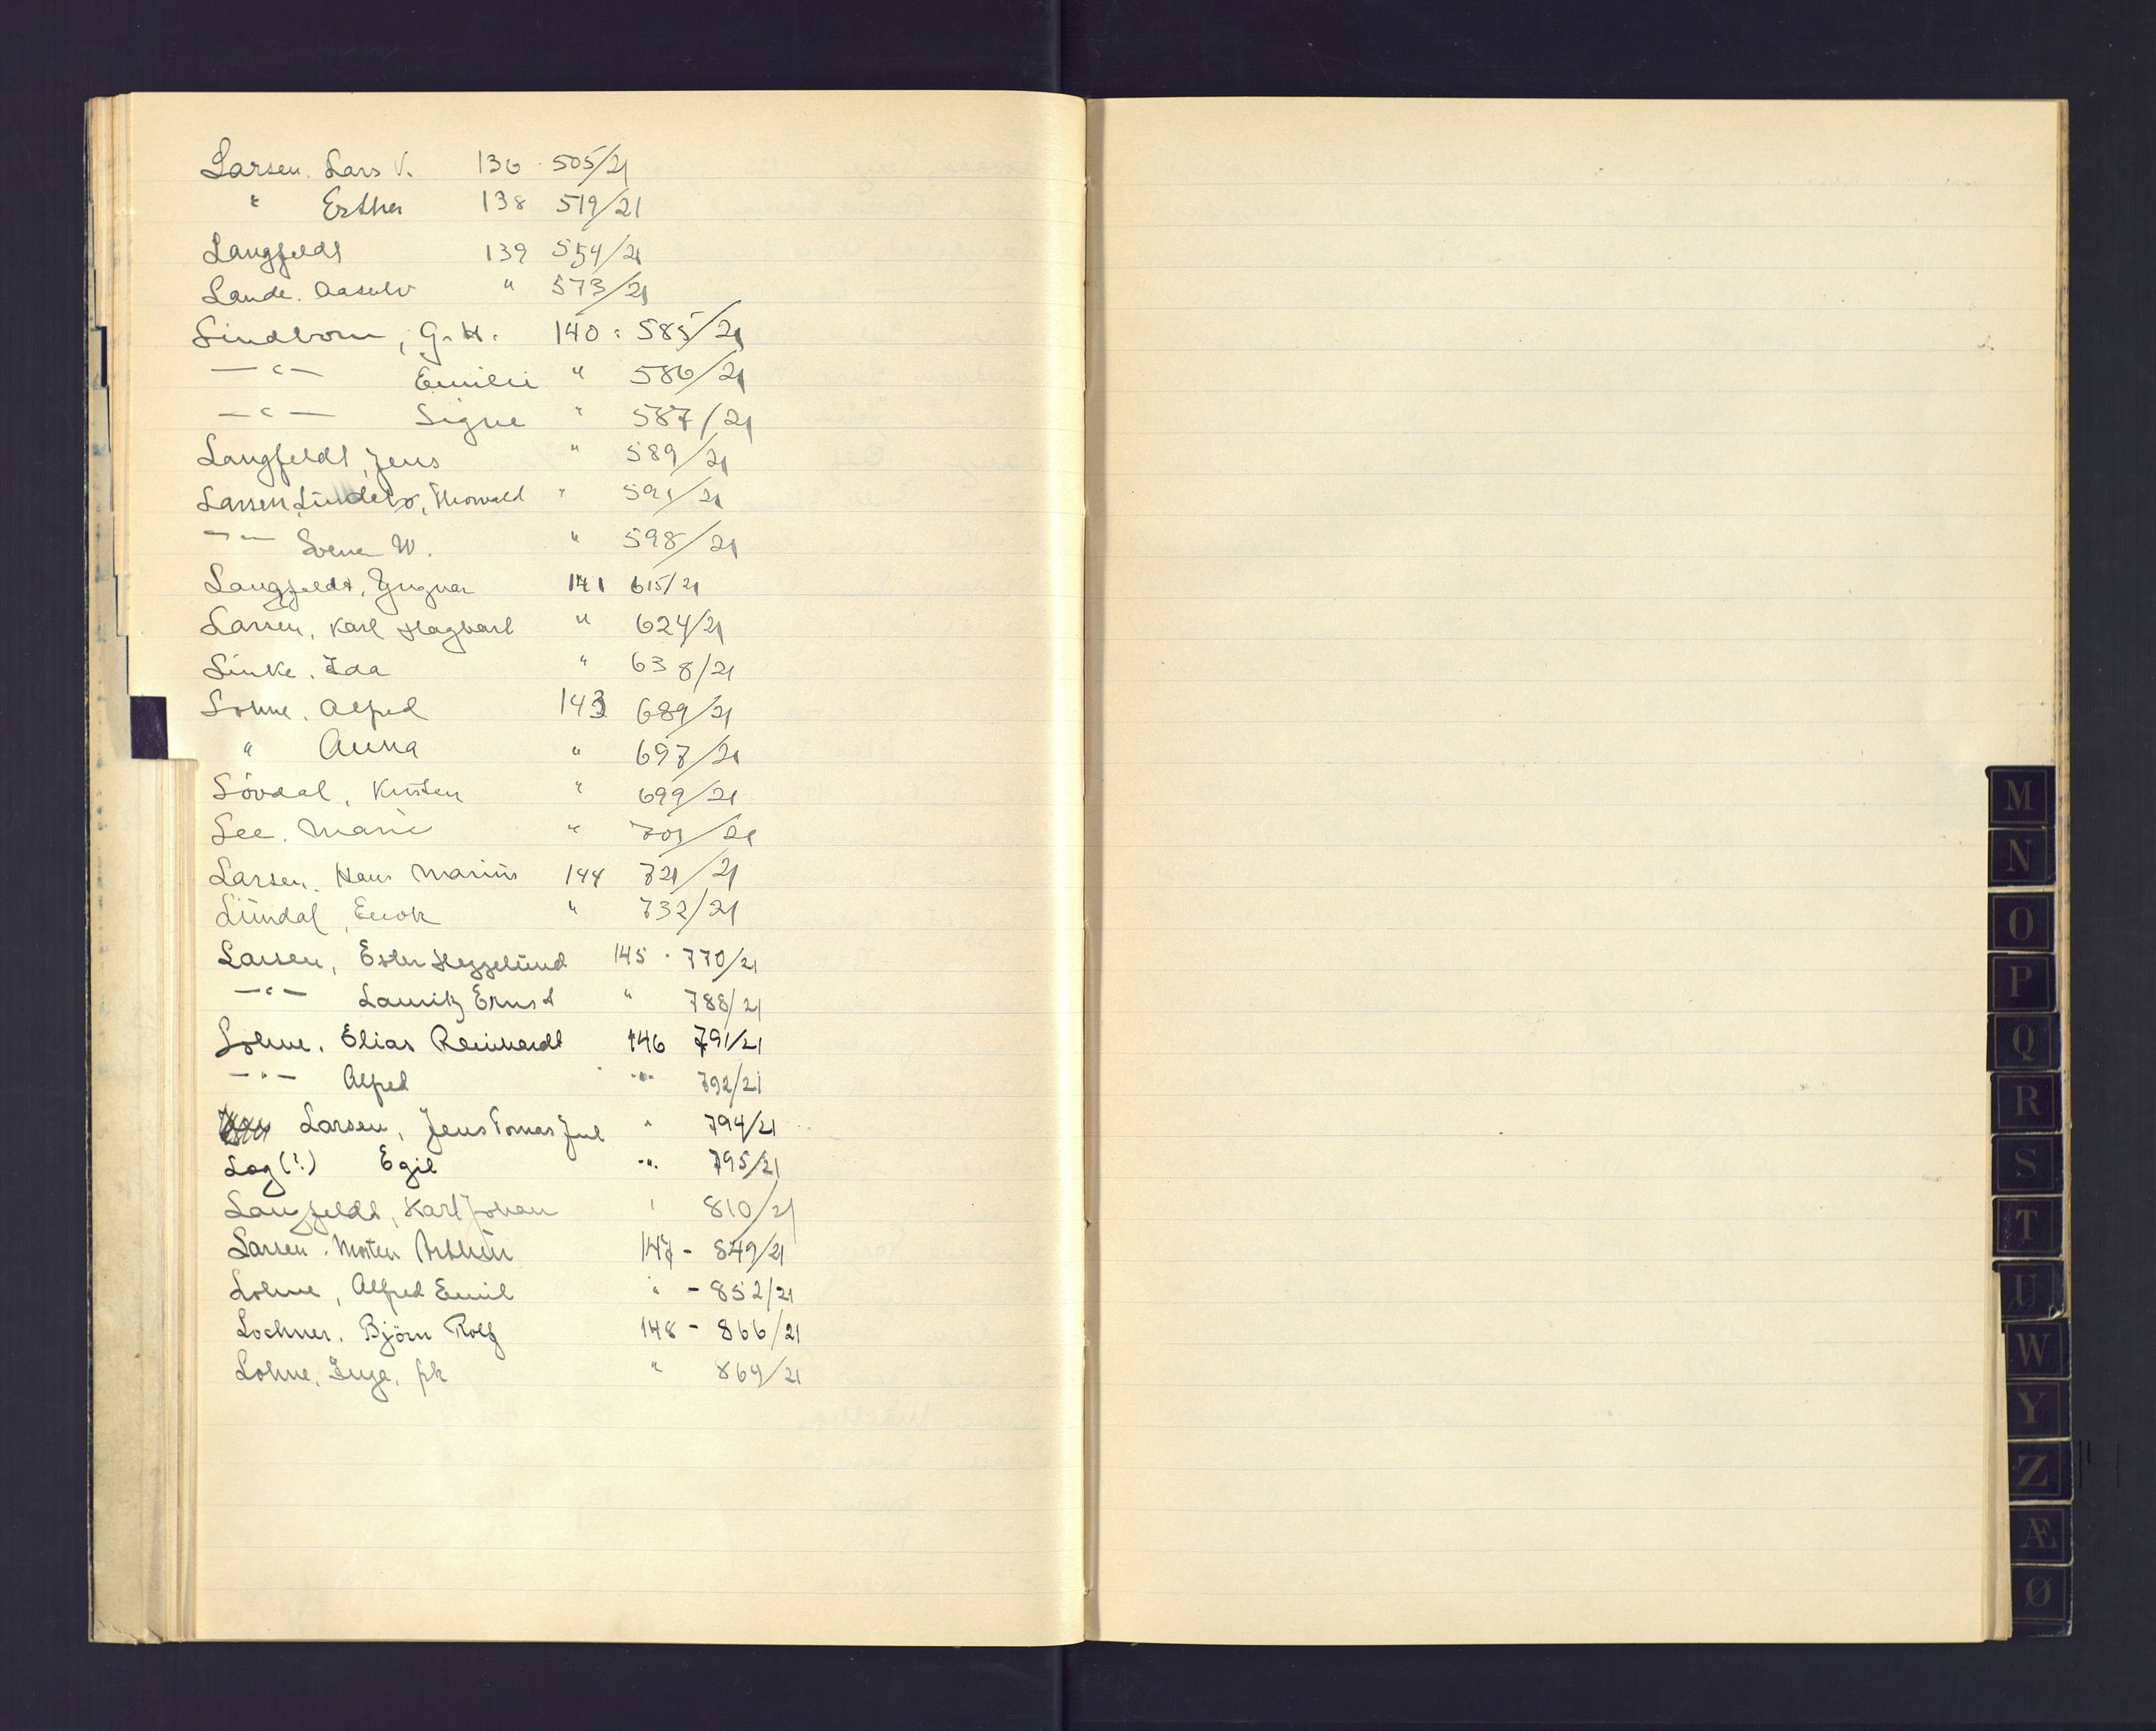 Larsen. Lars V. 136 505/21
" Esther 138 519/21
Langfeldt 139 554/21
Lande. Aasulv " 573/21
Lindbom, G. H. 140 : 585/21
— " — Emilie " 586/21
— " — Signe " 587/21
Langfeldt, Jens " 589/21
Larsen Lindebø, Thorvald " 591/21
— " — W. " 598/21
Langfeldt, Yngvar 141 615/21
Larsen, Karl Hagbart " 624/21
Linke. Ida " 638/21
Lohne. Alfred 143 689/21
" Anna " 697/21
Lövdal, Kristen " 699/21
Lee. Marie " 701/21
Larsen. Hans Marius 144 721/21
Lundal, Enok " 732/21
Larsen, Ester Heggelund 145 · 770/21
— " — Lauritz Ernst " 788/21
Lohne. Elias Reinhardt 146 791/21
— " — Alfred " 792/21
Larsen, Jens Tomas Jul " 794/21
Log (?) Egil " 795/21
Langfeldt, Karl Johan " 810/21
Larsen. Morten Arthur 147 - 849/21
Lohne, Alfred Emil " - 852/21
Lochner. Björn Rolf 148 - 866/21
Lohne. Inga. frk " 869/21
M
N
O
P
Q
R
S
T
U
W
Y
Z
Æ
Ø